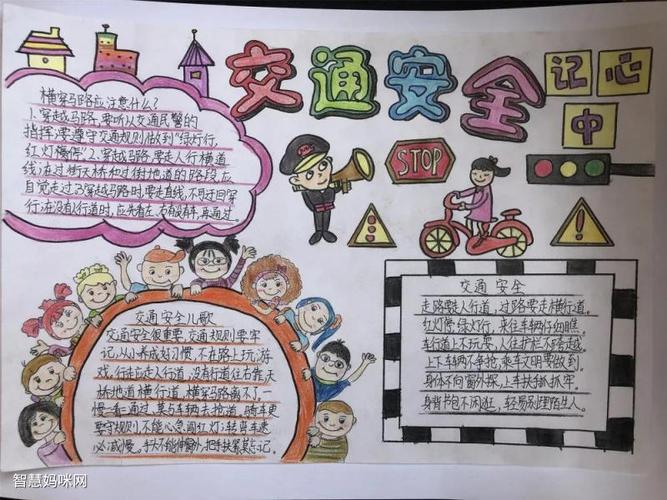 交通安全
记心
中
STOP
横穿马路应注意什么?
1.穿越马路,要听从交通民警的
指挥;要遵守交通规则,做到“绿灯行,
红灯停”。2.穿越马路,要走人行横道
线;在过街天桥和过街地道的路段,应
自觉走过。3.穿越马路时,要走直线,不可迂回穿
行;在没有人行道时,应先看左,右有没有车,再通过。
交通安全儿歌
交通安全很重要,交通规则要牢
记,从小养成好习惯,不在路上玩游
戏,行走应走人行道,没有行道往右靠,天
桥地道横行道,横穿马路离不了,一
慢二看三通过,莫与车辆去抢道,骑车更
要守规则,不能心急闯红灯;转弯车速
必减慢,手头不能伸窗外,把手扶紧莫忘记。
交通 安全
走路要走人行道,过路要走横行道。
红灯停绿灯行,来往车辆仔细瞧。
车行道上不玩耍,人住护栏不跨越。
上下车辆不争抢,乘车文明要做到。
身体不向窗外探,上车扶好抓牢。
身背书包不闲逛,轻易别理陌生人。
智慧妈咪网